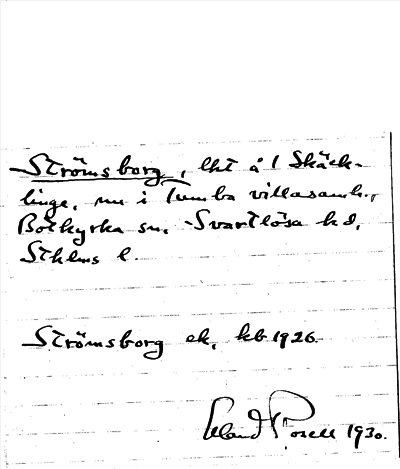 Strömsborg, lht å 1 Skäck-
linge, nu i Tumba villasamh.,
Botkyrka sn. Svartlösa hd,
Sthlms l.
Strömsborg ek. kb 1926.
Erland Rosell 1930.